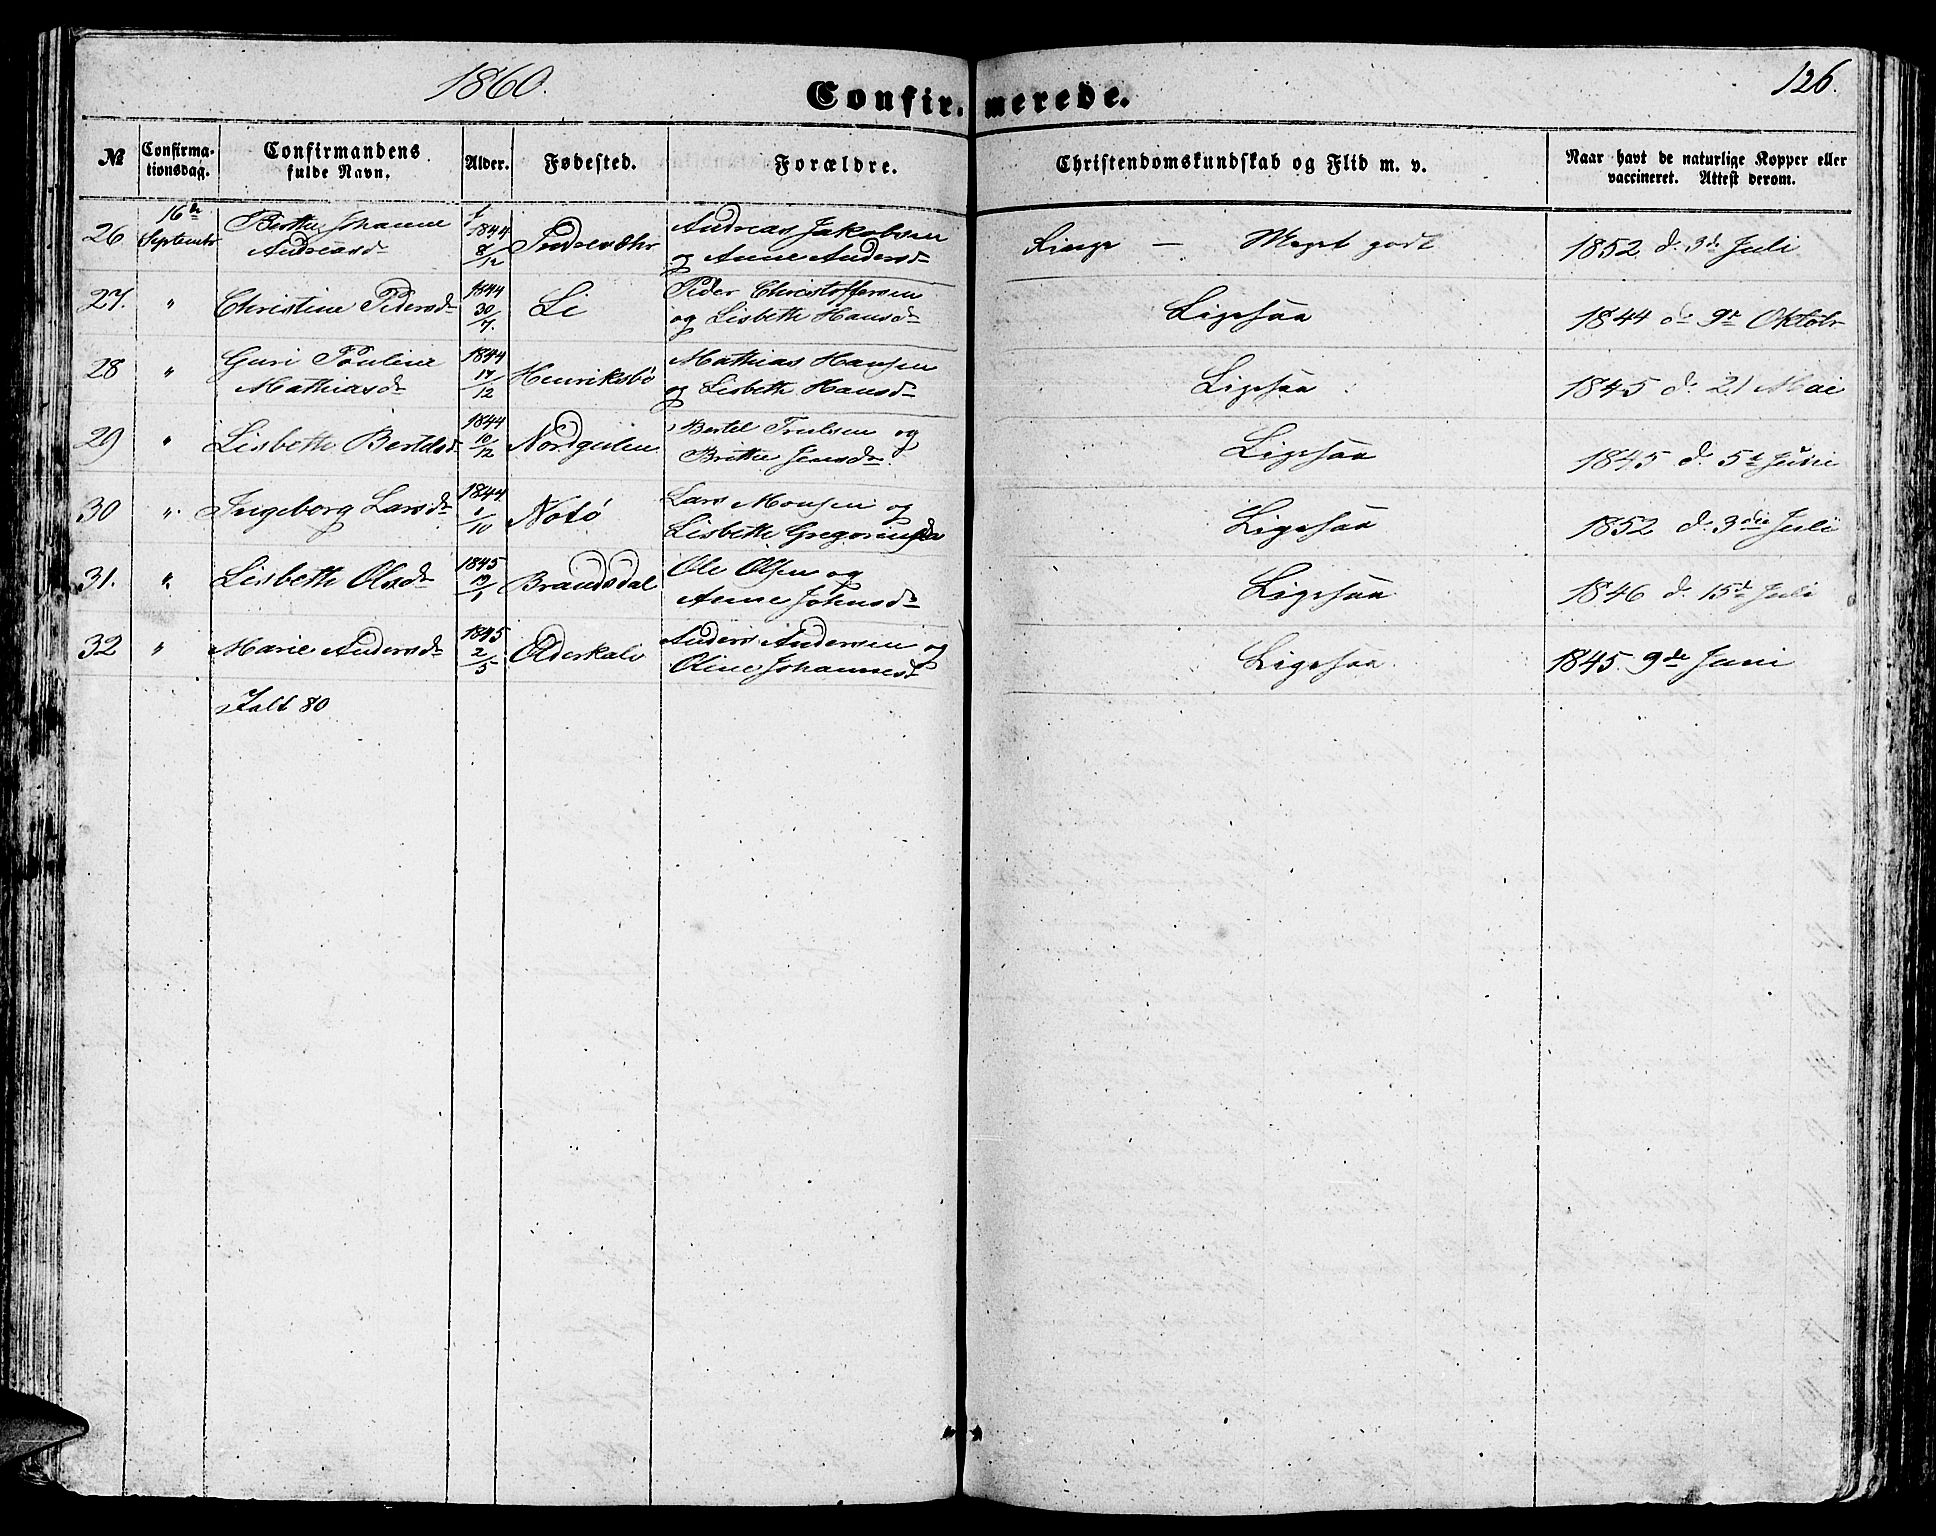 1860.
Confirmerede.
126.
№
Confirmationsdag.
Confirmandens fulde Navn.
Alder.
Fødested.
Forældre.
Christendomskundskab og Flid m. v.
Naar havt de naturlige Kopper eller vaccineret. Attest derom.
26 16de September Berthe Johanne Andreasd 1844 8/12 Andreas Jakobsen og Anne Andersd — Meget godt 1852 d. 3d Juli
27. " Christine Pedersd 1844 30/7. Li Peder Christoffersen og Lisbeth Hansd Ligesaa 1844 d 9de Oktobr
28 " Guri Pouline Mathiasd 1844 17/12 Henriksbö Mathias Hansen og Lisbeth Hansd Ligesaa 1845 d. 21 Mai
29 " Lisbeth Bertelsd 1844 10/12 Nordgulen Bertel Trulsen og Brithe Jensd Ligesaa 1845 d. 5t Juni
30 " Ingeborg Larsd 1844 1/10 Notö Lars Monsen og Lisbeth Gregoriusd Ligesaa 1852 d. 3die Juli
31. " Lisbeth Olsd 1845 19/1 Brandsdal Ole Olsen og Anne Johnsd Ligesaa 1846 d. 15d Juli
32 " Marie Andersd 1845 2/5 Anders Andersen og Oline Johannesd Ligesaa 1845 9de Juni
Ialt 80